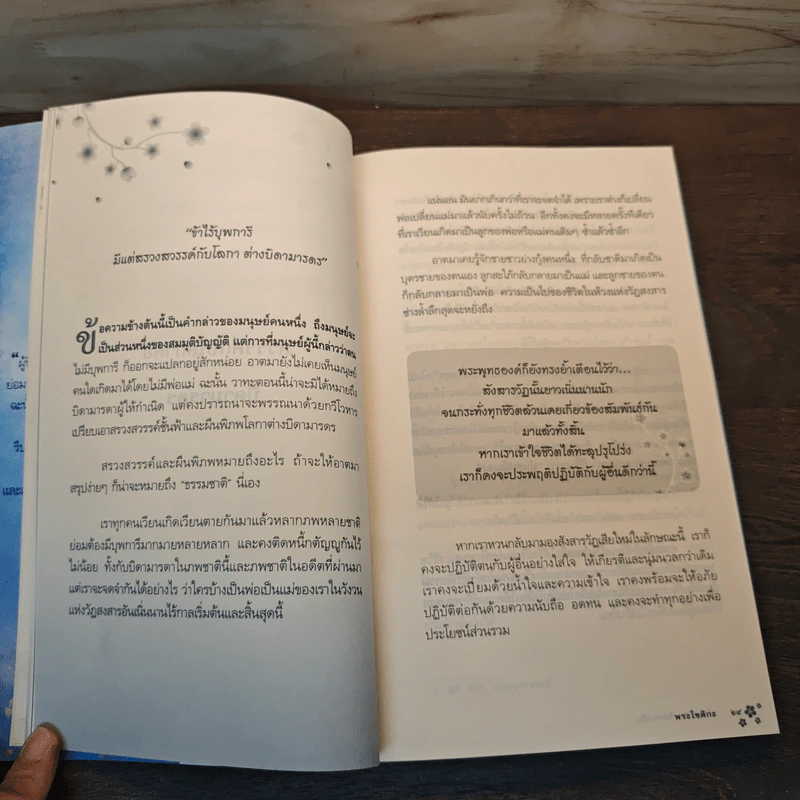 "ข้าไร้บุพการี
มีแต่สรวงสวรรค์กับโลกา ต่างบิดามารดร"
ข้อความข้างต้นนี้เป็นคำกล่าวของมนุษย์คนหนึ่ง ถึงมนุษย์จะ
เป็นส่วนหนึ่งของสมมุติบัญญัติ แต่การที่มนุษย์ผู้นี้กล่าวว่าตน
ไม่มีบุพการี ก็ออกจะแปลกอยู่สักหน่อย อาตมายังไม่เคยเห็นมนุษย์
คนใดเกิดมาได้โดยไม่มีพ่อแม่ ฉะนั้น วาทะตอนนี้น่าจะมิได้หมายถึง
บิดามารดาผู้ให้กำเนิด แต่คงปรารถนาจะพรรณนาด้วยกวีโวหาร
เปรียบเอาสรวงสวรรค์ชั้นฟ้าและผืนพิภพโลกาต่างบิดามารดร
สรวงสวรรค์และผืนพิภพหมายถึงอะไร ถ้าจะให้อาตมา
สรุปง่ายๆ ก็น่าจะหมายถึง "ธรรมชาติ" นี่เอง
เราทุกคนเวียนเกิดเวียนตายกันมาแล้วหลากภพหลายชาติ
ย่อมต้องมีบุพการีมากมายหลายหลาก และคงติดหนี้กตัญญูกันไว้
ไม่น้อย ทั้งกับบิดามารดาในภพชาตินี้และภพชาติในอดีตที่ผ่านมา
แต่เราจะจดจำกันได้อย่างไร ว่าใครบ้างเป็นพ่อเป็นแม่ของเราในวังวน
แห่งวัฏสงสารอันเนิ่นนานไร้กาลเริ่มต้นและสิ้นสุดนี้
แน่นอน มันยากเกินกว่าที่เราจะจดจำได้ เพราะเราต่างก็เปลี่ยน
พ่อเปลี่ยนแม่มาแล้วนับครั้งไม่ถ้วน อีกทั้งคงจะมีหลายครั้งทีเดียว
ที่เราเวียนเกิดมาเป็นลูกของพ่อหรือแม่คนเดิมๆ ซ้ำแล้วซ้ำอีก
อาตมาเคยรู้จักชายชาวย่างกุ้งคนหนึ่ง ที่กลับชาติมาเกิดเป็น
บุตรชายของตนเอง ลูกสะใภ้กลับกลายมาเป็นแม่ และลูกชายของตน
ก็กลับกลายมาเป็นพ่อ ความเป็นไปของชีวิตในห้วงแห่งวัฏสงสาร
ช่างล้ำลึกสุดจะหยั่งถึง
พระพุทธองค์ก็ยังทรงย้ำเตือนไว้ว่า...
สังสารวัฏนั้นยาวเนิ่นนานนัก
จนกระทั่งทุกชีวิตล้วนเคยเกี่ยวข้องสัมพันธ์กัน
มาแล้วทั้งสิ้น
หากเราเข้าใจชีวิตได้ทะลุปรุโปร่ง
เราก็คงจะประพฤติปฏิบัติกับผู้อื่นดีกว่านี้
หากเราหวนกลับมามองสังสารวัฏเสียใหม่ในลักษณะนี้ เราก็
คงจะปฏิบัติตนกับผู้อื่นอย่างใส่ใจ ให้เกียรติและนุ่มนวลกว่าเดิม
เราคงจะเปี่ยมด้วยน้ำใจและความเข้าใจ เราคงพร้อมจะให้อภัย
ปฏิบัติต่อกันด้วยความนับถือ อดทน และคงจะทำทุกอย่างเพื่อ
ประโยชน์ส่วนรวม
พระโชติกะ ๒๙